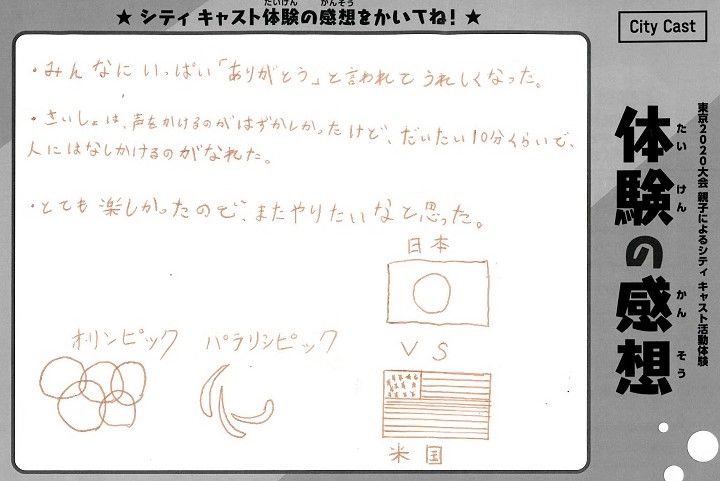 ★ シティ キャスト体験の感想をかいてね! ★
たいけん かんそう
・みんなにいっぱい「ありがとう」と言われてうれしくなった。
・さいしょは、声をかけるのがはずかしかったけど、だいたい10分くらいで、
人にはなしかけるのがなれた。
・とても楽しかったので、またやりたいなと思った。
日本
VS
米国
オリンピック
パラリンピック
City Cast
東京2020大会 親子によるシティ キャスト活動体験
体験の感想
たい けん かん そう